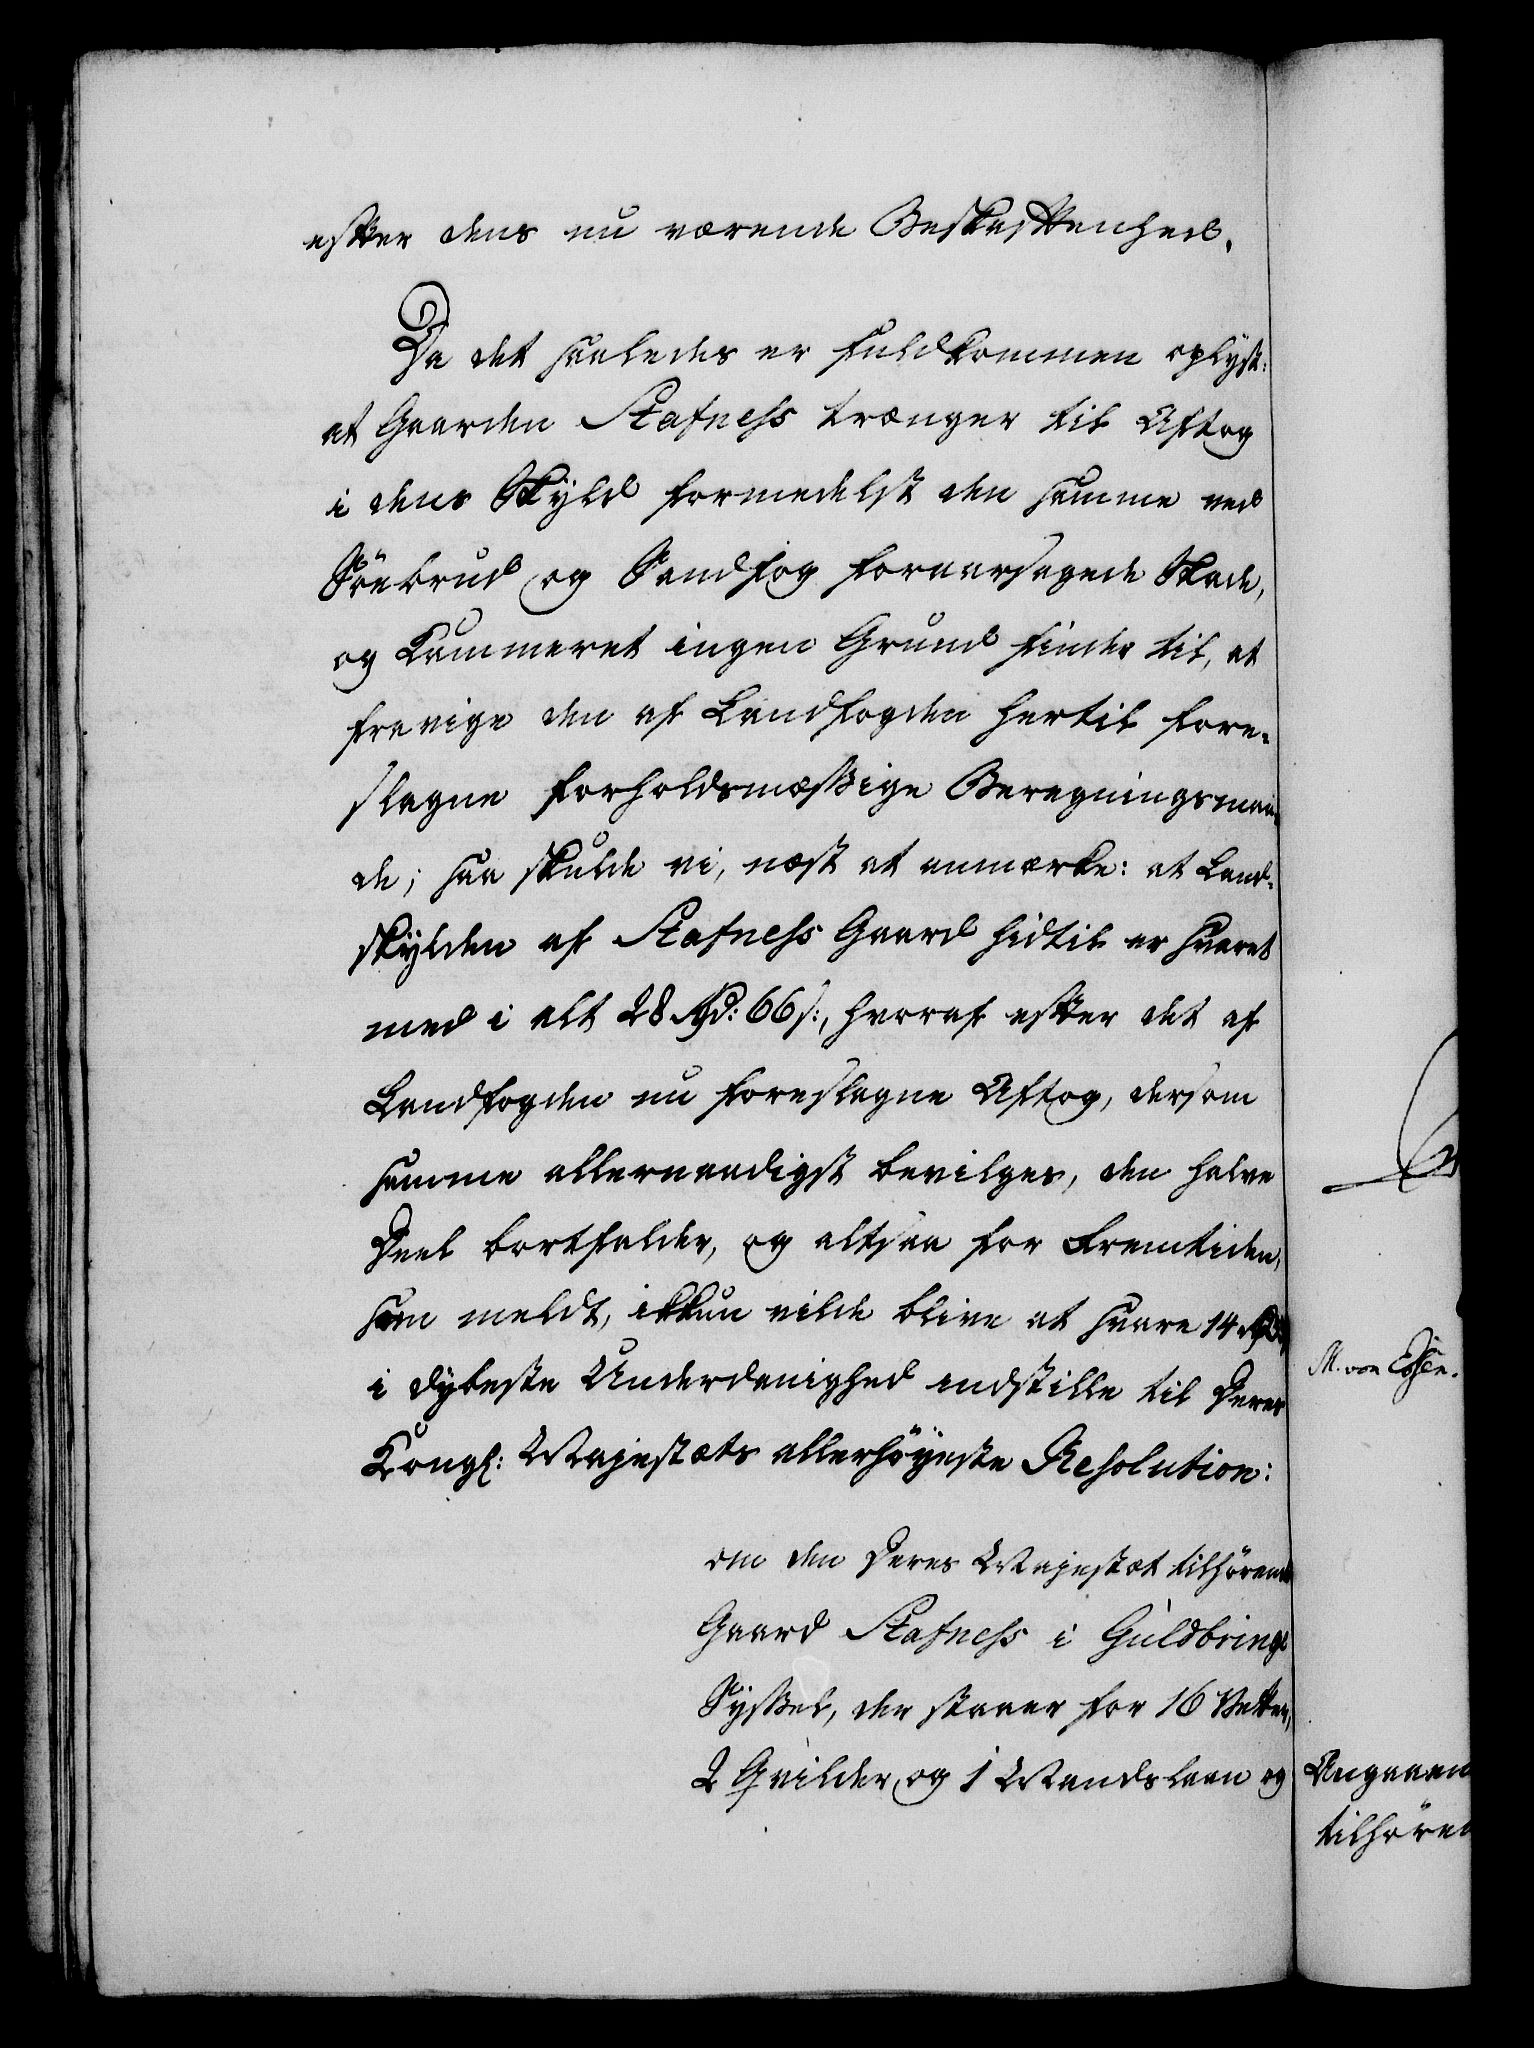 efter dens nu værende Beskaffenhed.
Da det saaledes er fuldkommen oplyst:
at Gaarden Stafness trænger til Aftog
i dens Skyld formedelst den samme ved
Söebrud og Sandfog foraarsagede Skade,
og Kammeret ingen Grund finder til, at
fravige den af Landfogden hertil fore-
slagne forholdsmæssige Beregningsmaa-
de; saa skulde vi, næst at anmærke: at Land-
skylden af Stafness Gaard hidtil er svaret
med i alt 28 Rd: 66 s:, hvoraf efter det af
Landfogden nu foreslagne Aftog, dersom
samme allernaadigst bevilges, den halve
Deel bortfalder, og altsaa for Fremtiden,
som meldt, ikkun vilde blive at svare 14 Rd
i dybeste Underdanighed indstille til Deres
Kongl: Majestæts allerhöyeste Resolution:
om den Deres Majestæt tilhörende
Gaard Stafness i Guldbringe
Syssel, der staaer for 16 Vetter,
2 Qvilder og 1 Mandslaan og
M. von Essen.
Angaaen
tilhören